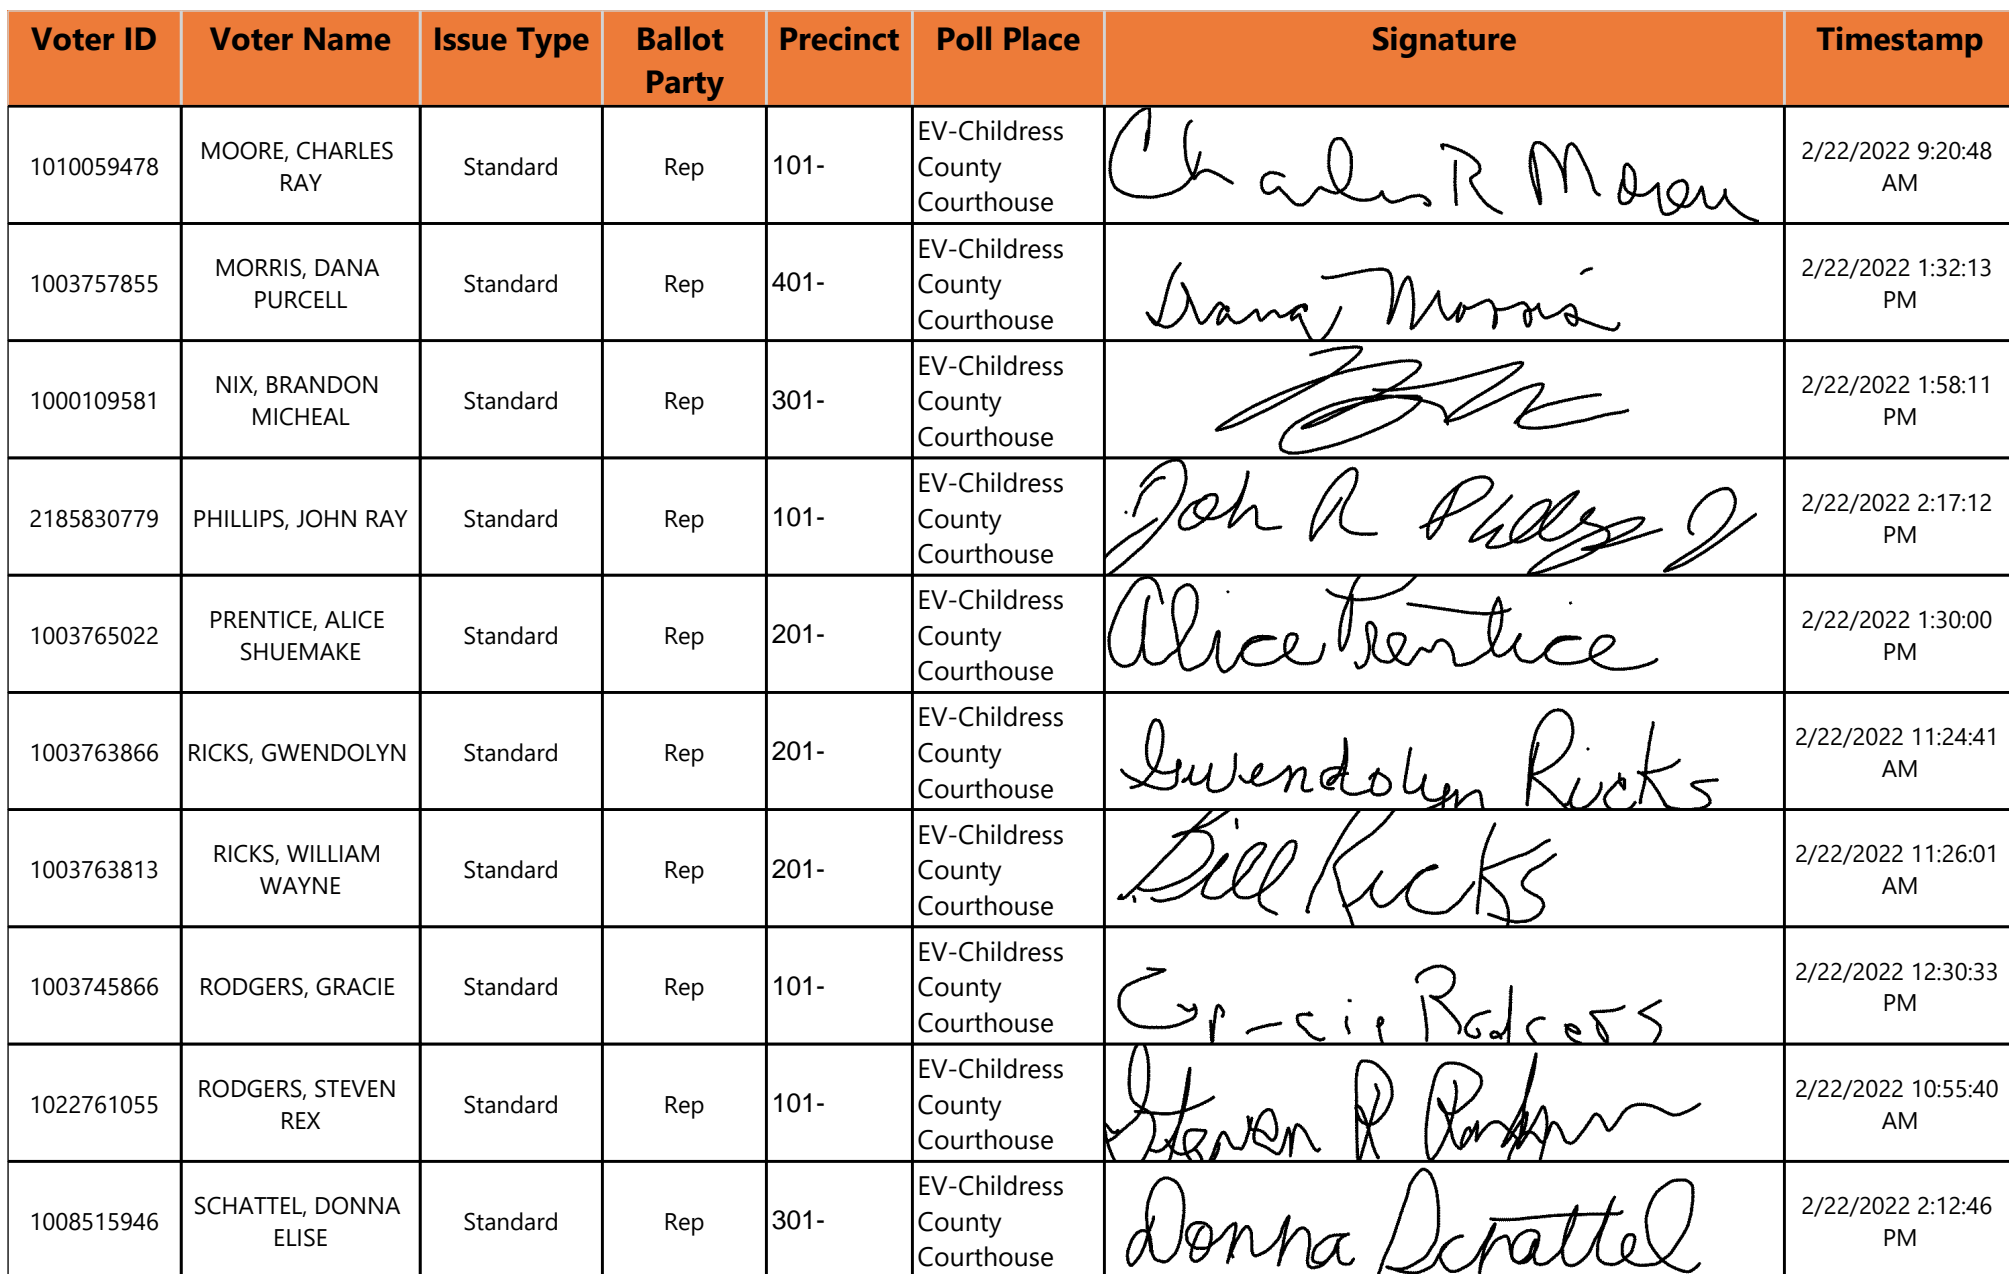 Voter ID Voter Name Issue Type Ballot Party Precinct Poll Place Signature Timestamp
1010059478 MOORE, CHARLES RAY Standard Rep 101- EV-Childress County Courthouse Charles R Moore 2/22/2022 9:20:48 AM
1003757855 MORRIS, DANA PURCELL Standard Rep 401- EV-Childress County Courthouse Dana Morris 2/22/2022 1:32:13 PM
1000109581 NIX, BRANDON MICHEAL Standard Rep 301- EV-Childress County Courthouse 2/22/2022 1:58:11 PM
2185830779 PHILLIPS, JOHN RAY Standard Rep 101- EV-Childress County Courthouse John R Phillips Jr 2/22/2022 2:17:12 PM
1003765022 PRENTICE, ALICE SHUEMAKE Standard Rep 201- EV-Childress County Courthouse Alice Prentice 2/22/2022 1:30:00 PM
1003763866 RICKS, GWENDOLYN Standard Rep 201- EV-Childress County Courthouse Gwendolyn Ricks 2/22/2022 11:24:41 AM
1003763813 RICKS, WILLIAM WAYNE Standard Rep 201- EV-Childress County Courthouse Bill Ricks 2/22/2022 11:26:01 AM
1003745866 RODGERS, GRACIE Standard Rep 101- EV-Childress County Courthouse Gracie Rodgers 2/22/2022 12:30:33 PM
1022761055 RODGERS, STEVEN REX Standard Rep 101- EV-Childress County Courthouse Steven R Rodgers 2/22/2022 10:55:40 AM
1008515946 SCHATTEL, DONNA ELISE Standard Rep 301- EV-Childress County Courthouse Donna Schattel 2/22/2022 2:12:46 PM